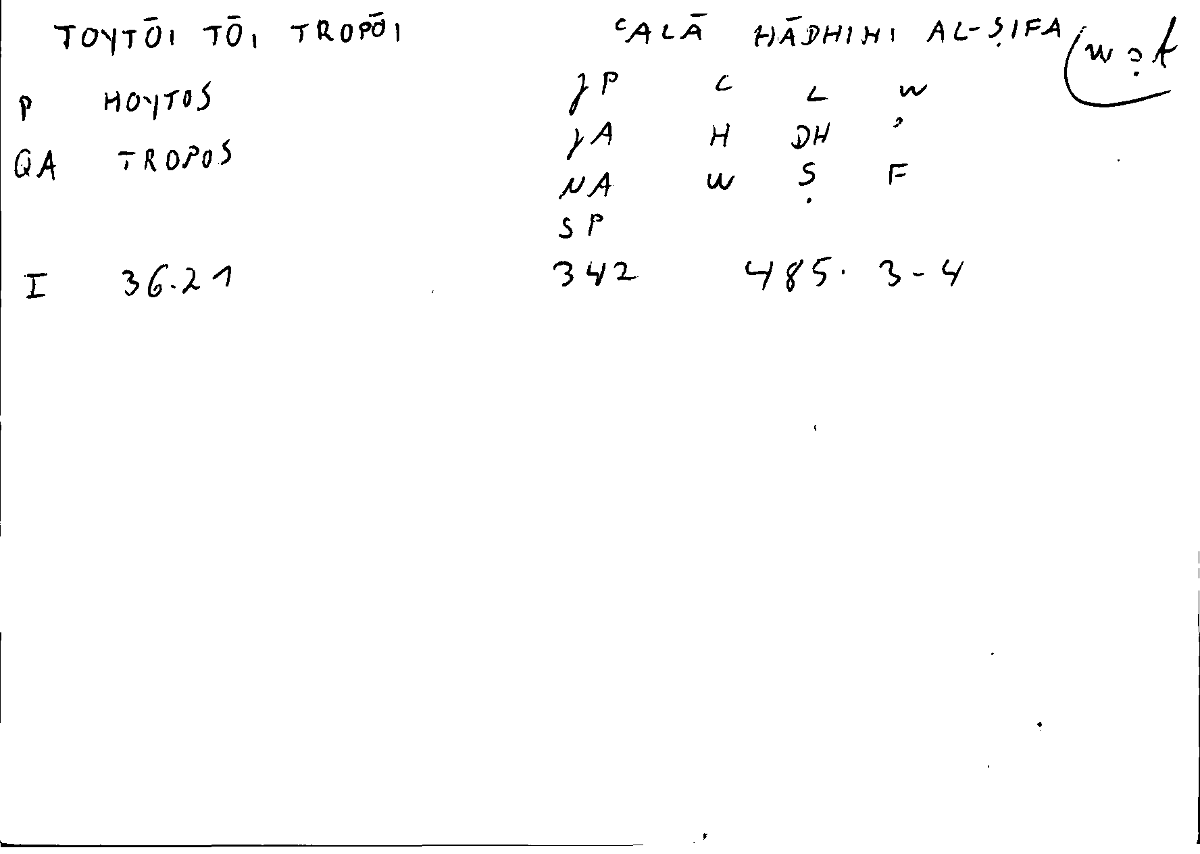 TOYTŌI TŌI TROPŌI ʿALĀ HĀDHIHI AL-ṢIFA
P HOYTOS JP ʿ L W
QA TROPOS JA H DH ʾ
NA W Ṣ F
SP
I 36.21 342 485. 3-4